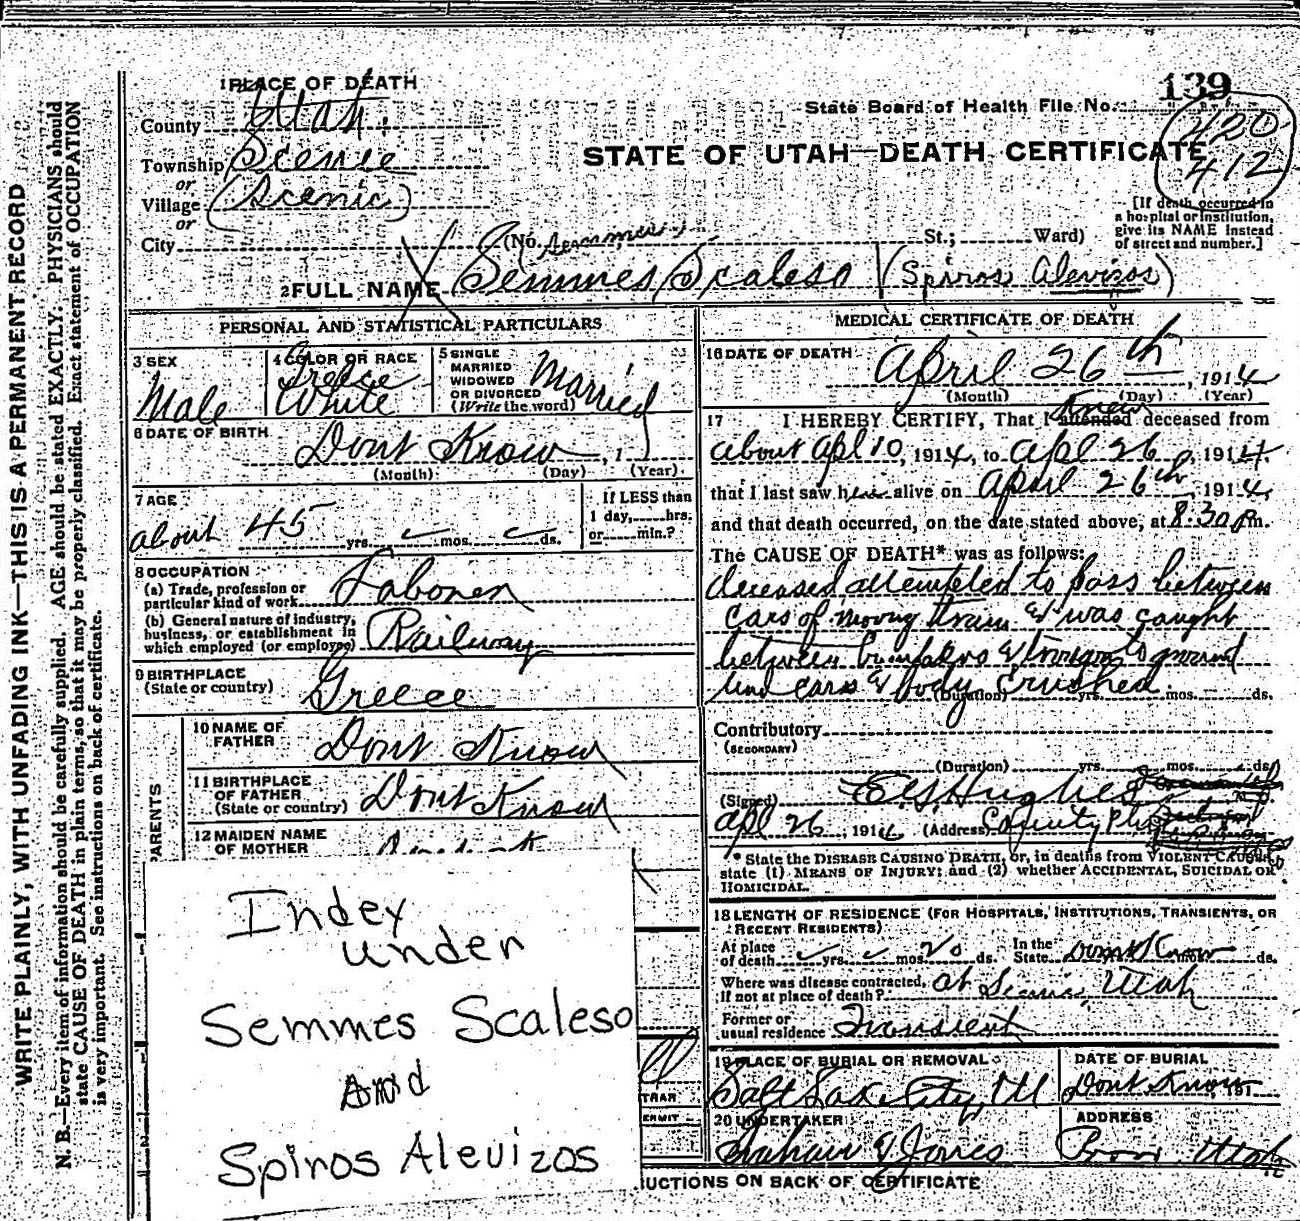 139
State Board of Health File No.
420
412
STATE OF UTAH—DEATH CERTIFICATE
1 PLACE OF DEATH
County Utah.
Township Scenic
or
Village (Scenic)
or
City (No. Semmes St.; Ward)
[If death occurred in
a hospital or institution,
give its NAME instead
of street and number.]
2 FULL NAME Semmes Scaleso (Spiros Alevizos)
PERSONAL AND STATISTICAL PARTICULARS
3 SEX
Male
4 COLOR OR RACE
Greece
White
5 SINGLE
MARRIED
WIDOWED
OR DIVORCED
(Write the word)
Married
6 DATE OF BIRTH
Dont Know, 1
(Month) (Day) (Year)
7 AGE
about 45 yrs. mos. ds.
If LESS than
1 day, hrs.
or min.?
8 OCCUPATION
(a) Trade, profession or
particular kind of work Laborer
(b) General nature of industry,
business, or establishment in
which employed (or employer) Railway
9 BIRTHPLACE
(State or country) Greece
PARENTS
10 NAME OF
FATHER Dont Know
11 BIRTHPLACE
OF FATHER
(State or country) Dont Know
12 MAIDEN NAME
OF MOTHER
Index
under
Semmes Scaleso
And
Spiros Alevizos
MEDICAL CERTIFICATE OF DEATH
16 DATE OF DEATH
April 26th, 1914
(Month) (Day) (Year)
17 I HEREBY CERTIFY, That I attended Knew deceased from
about Apl 10, 1914, to Apl 26, 1914
that I last saw him alive on April 26th, 1914,
and that death occurred, on the date stated above, at 8:30 P m.
The CAUSE OF DEATH* was as follows:
deceased attempted to pass between
cars of moving train & was caught
between bumpers & to ground
und cars & body crushed.
(Duration) yrs. mos. ds.
Contributory
(SECONDARY)
(Duration) yrs. mos. ds.
(Signed) Hughes
Apl 26, 1914 (Address) County
* State the DISEASE CAUSING DEATH, or, in deaths from VIOLENT CAUSES,
state (1) MEANS OF INJURY; and (2) whether ACCIDENTAL, SUICIDAL OR
HOMICIDAL.
18 LENGTH OF RESIDENCE (FOR HOSPITALS, INSTITUTIONS, TRANSIENTS, OR
RECENT RESIDENTS)
At place
of death yrs. mos. 20 ds.
In the
State Dont Know ds.
Where was disease contracted,
if not at place of death? at Scenic, Utah
Former or
usual residence Transient
19 PLACE OF BURIAL OR REMOVAL
Salt Lake City, Ut
DATE OF BURIAL
Dont Know, 191
20 UNDERTAKER
Graham & Jones
ADDRESS
Provo Utah
UCTIONS ON BACK OF CERTIFICATE
WRITE PLAINLY, WITH UNFADING INK—THIS IS A PERMANENT RECORD
N. B.—Every item of information should be carefully supplied. AGE should be stated EXACTLY. PHYSICIANS should
state CAUSE OF DEATH in plain terms, so that it may be properly classified. Exact statement of OCCUPATION
is very important. See instructions on back of certificate.